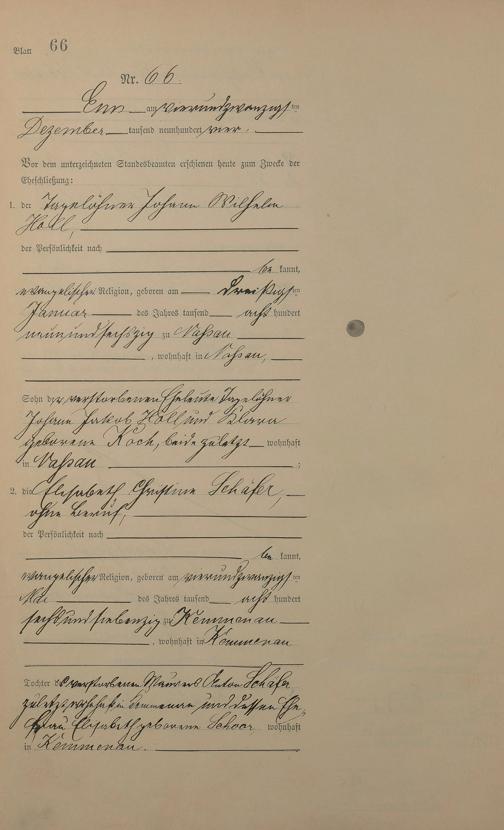 Blatt 66
Nr. 66.
Ems am vierundzwanzigsten
Dezember tausend neunhundert vier.
Vor dem unterzeichneten Standesbeamten erschienen heute zum Zwecke der
Eheschließung:
1. der Tagelöhner Johann Wilhelm
Höll,
der Persönlichkeit nach
be kannt,
evangelischer Religion, geboren am dreißigsten
Januar des Jahres tausend acht hundert
neunundsechszig zu Nassau
, wohnhaft in Nassau,
Sohn der verstorbenen Eheleute Tagelöhner
Johann Jakob Höll und Klara
geborene Koch, beide zuletzt wohnhaft
in Nassau ;
2. die Elisabeth Christine Schäfer,
ohne Beruf,
der Persönlichkeit nach
be kannt,
evangelischer Religion, geboren am vierundzwanzigsten
Mai des Jahres tausend acht hundert
sechsundsiebenzig zu Kemmenau
, wohnhaft in Kemmenau
Tochter des verstorbenen Maurers Anton Schäfer
zuletzt wohnhaft in Kemmenau und dessen Ehe
frau Elisabeth geborene Schoor wohnhaft
in Kemmenau.